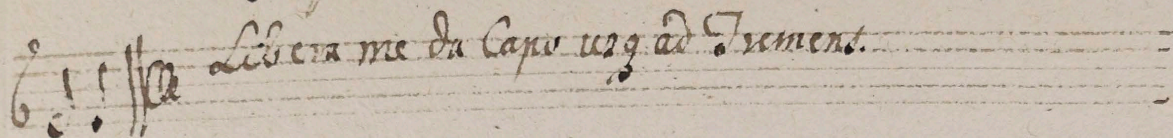 Libera me da Capo usq ad Tremens.